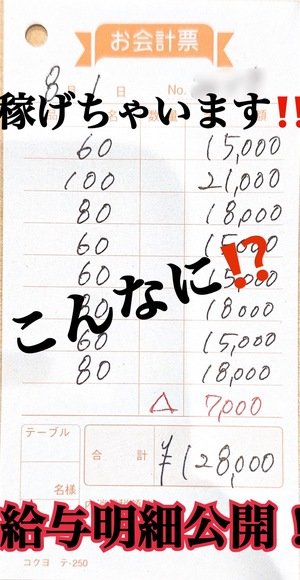 お会計票
8月1日 No.
稼げちゃいます‼️
60 15,000
100 21,000
80 18,000
60 15,000
60 15,000
こんなに⁉️
80 18,000
60 15,000
80 18,000
△ 7,000
テーブル
合計 ¥128,000
名様
給与明細公開!
コクヨ テ-250